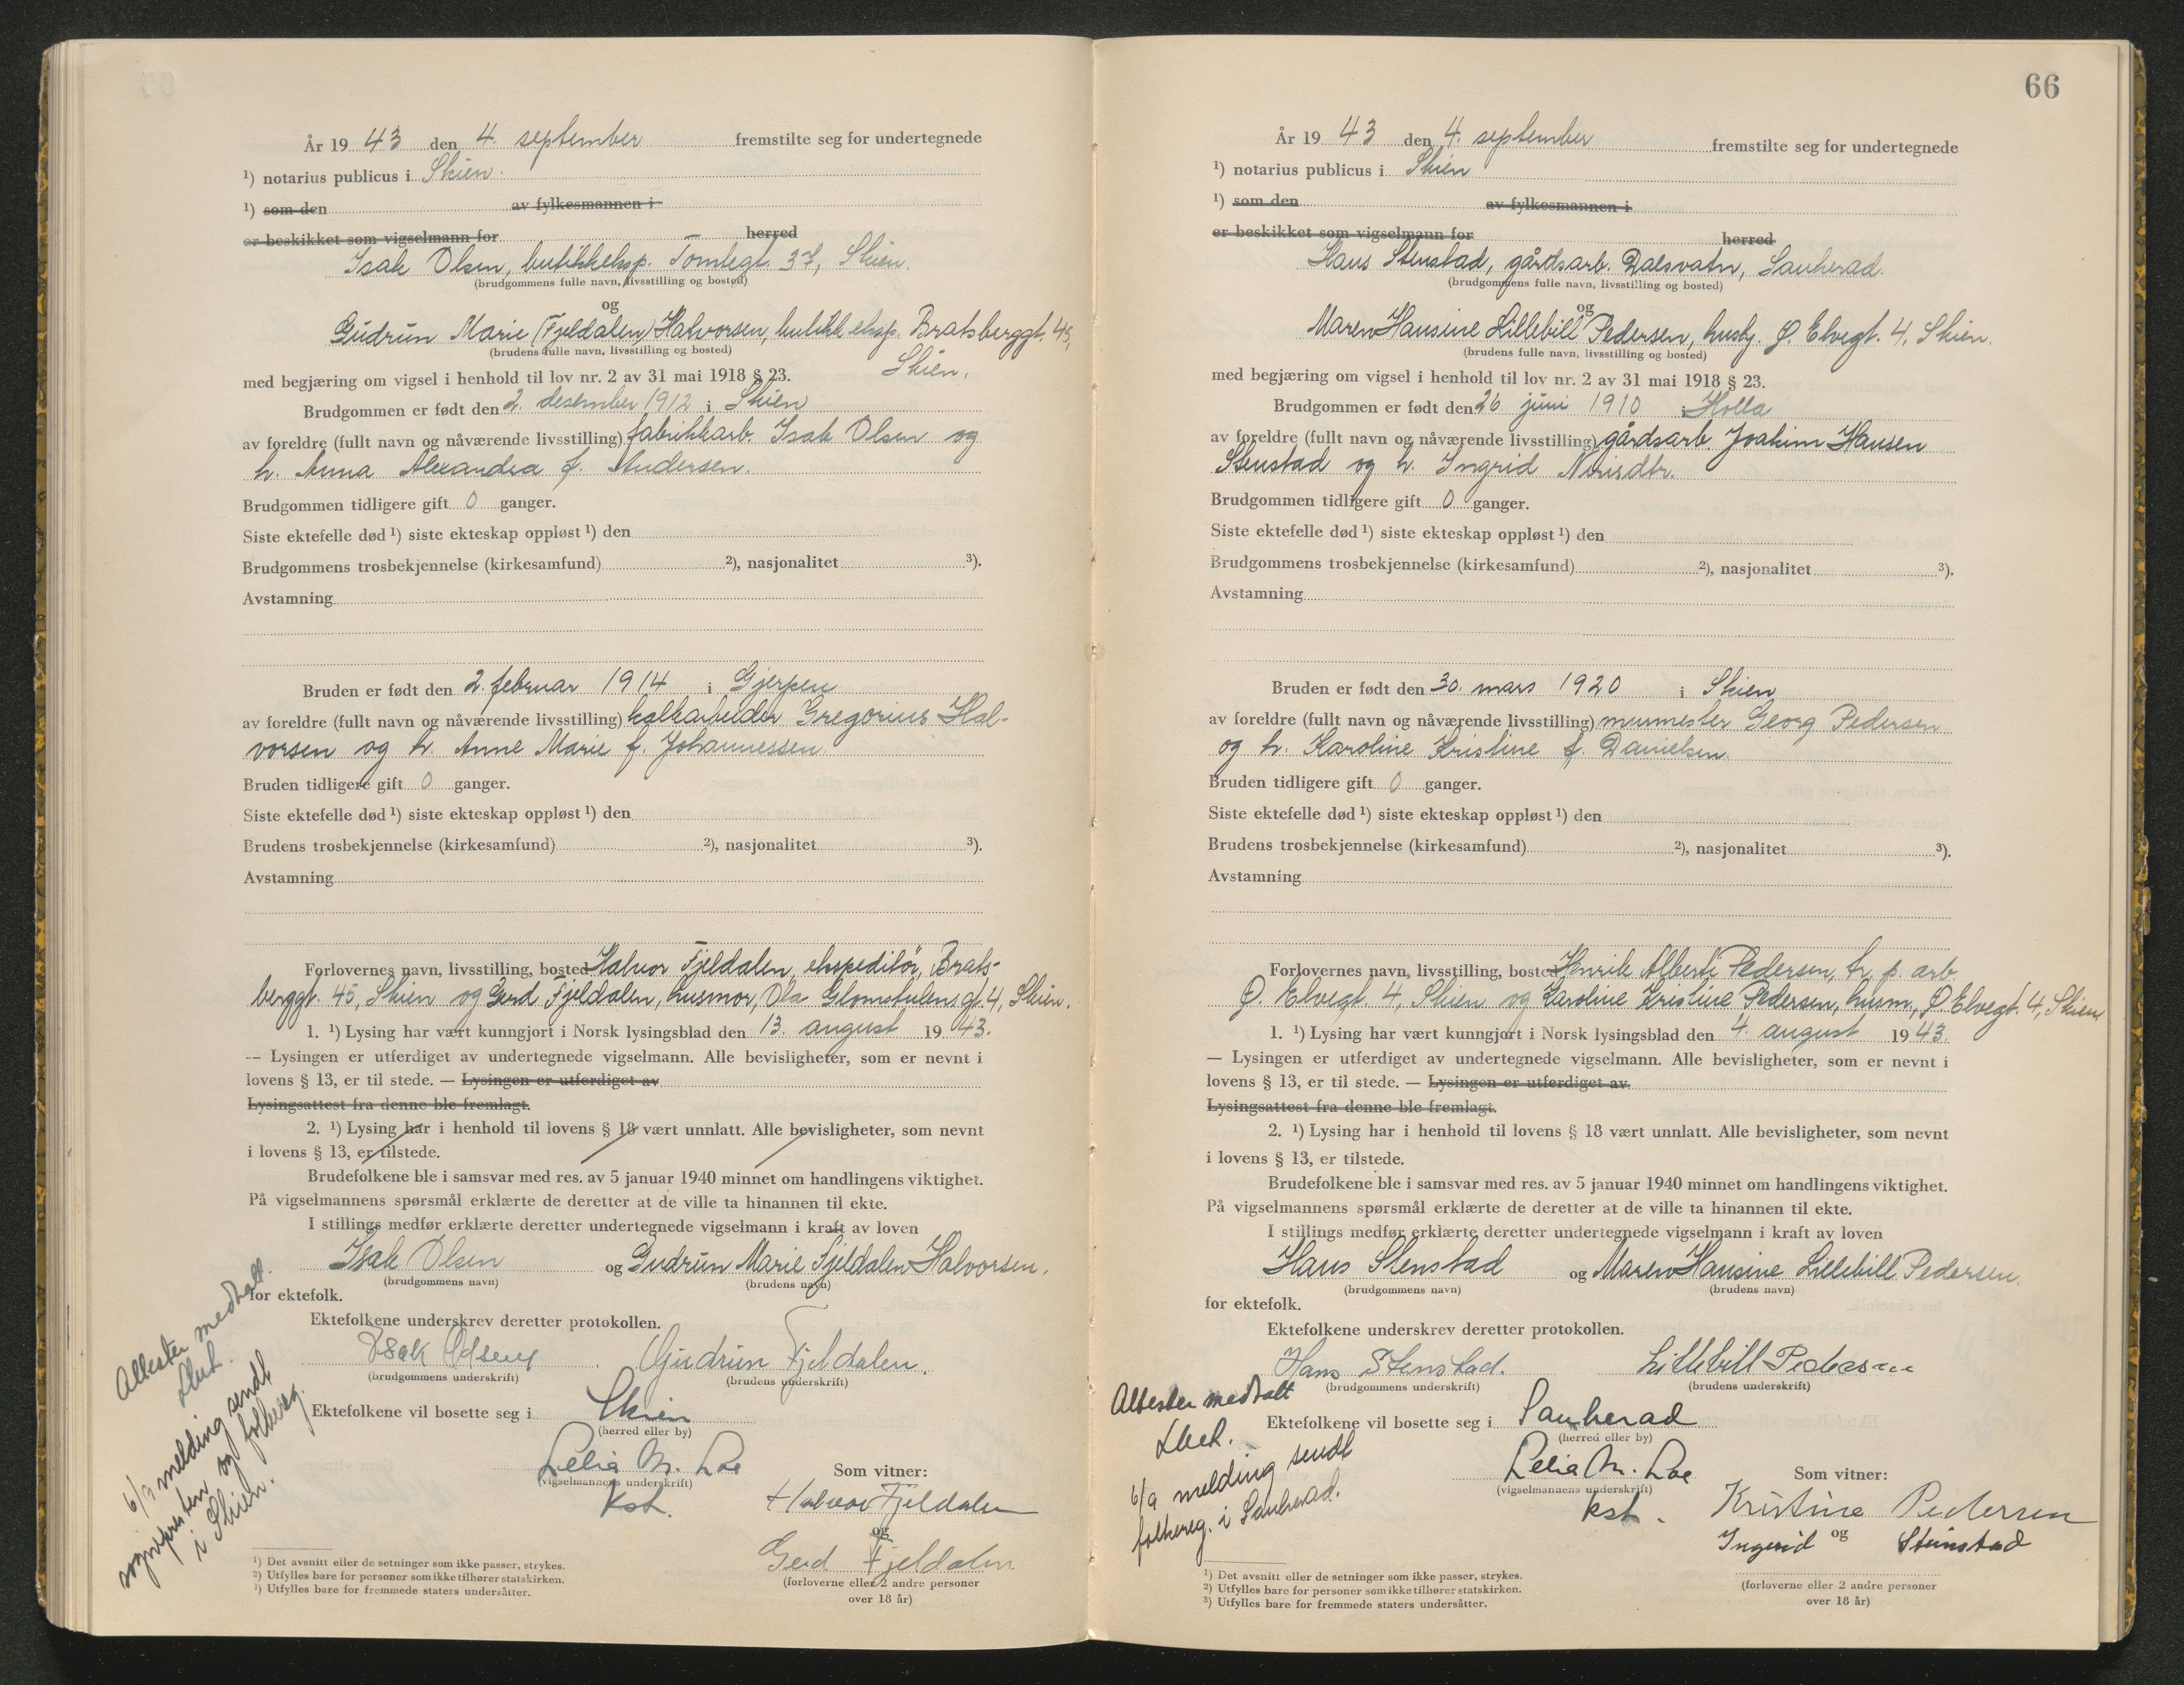 År 19 43 den 4. september fremstilte seg for undertegnede
¹) notarius publicus i Skien.
¹) som den av fylkesmannen i
er beskikket som vigselmann for herred
Isak Olsen, butikkeksp. Tomtegt. 37, Skien.
(brudgommens fulle navn, livsstilling og bosted)
og
Gudrun Marie (Fjeldalen) Halvorsen, butikk eksp. Bratsberggt. 45,
(brudens fulle navn, livsstilling og bosted)
Skien.
med begjæring om vigsel i henhold til lov nr. 2 av 31 mai 1918 § 23.
Brudgommen er født den 2. desember 1912 i Skien
av foreldre (fullt navn og nåværende livsstilling) fabrikkarb. Isak Olsen og
h. Anna Alexandra f. Andersen.
Brudgommen tidligere gift 0 ganger.
Siste ektefelle død ¹) siste ekteskap oppløst ¹) den
Brudgommens trosbekjennelse (kirkesamfund) ²), nasjonalitet ³).
Avstamning
Bruden er født den 2. februar 1914 i Gjerpen
av foreldre (fullt navn og nåværende livsstilling) kalkarbeider Gregorius Hal-
vorsen og h. Anne Marie f. Johannessen.
Bruden tidligere gift 0 ganger.
Siste ektefelle død ¹) siste ekteskap oppløst ¹) den
Brudens trosbekjennelse (kirkesamfund) ²), nasjonalitet ³).
Avstamning
Forlovernes navn, livsstilling, bosted Halvor Fjeldalen, ekspeditør, Brats-
berggt. 45, Skien og Gerd Fjeldalen, husmor, Ola Glomstulens gt. 4, Skien.
1. ¹) Lysing har vært kunngjort i Norsk lysingsblad den 13. august 19 43.
— Lysingen er utferdiget av undertegnede vigselmann. Alle bevisligheter, som er nevnt i
lovens § 13, er til stede. — Lysingen er utferdiget av
Lysingsattest fra denne ble fremlagt.
2. ¹) Lysing har i henhold til lovens § 18 vært unnlatt. Alle bevisligheter, som nevnt
i lovens § 13, er tilstede.
Brudefolkene ble i samsvar med res. av 5 januar 1940 minnet om handlingens viktighet.
På vigselmannens spørsmål erklærte de deretter at de ville ta hinannen til ekte.
I stillings medfør erklærte deretter undertegnede vigselmann i kraft av loven
Isak Olsen og Gudrun Marie Fjeldalen Halvorsen.
(brudgommens navn) (brudens navn)
for ektefolk.
Ektefolkene underskrev deretter protokollen.
Isak Olsen Gudrun Fjeldalen.
(brudgommens underskrift) (brudens underskrift)
Ektefolkene vil bosette seg i Skien
(herred eller by)
Lelia M. Loe
(vigselmannens underskrift)
kst.
Som vitner:
Halvor Fjeldalen
og
Gerd Fjeldalen
(forloverne eller 2 andre personer
over 18 år)
Attester medtatt.
6/9 melding sendt
sognepresten og folkereg.
i Skien.
¹) Det avsnitt eller de setninger som ikke passer, strykes.
²) Utfylles bare for personer som ikke tilhører statskirken.
³) Utfylles bare for fremmede staters undersåtter.
66
År 19 43 den 4. september fremstilte seg for undertegnede
¹) notarius publicus i Skien
¹) som den av fylkesmannen i
er beskikket som vigselmann for herred
Hans Stenstad, gårdsarb. Dalsvatn, Sauherad.
(brudgommens fulle navn, livsstilling og bosted)
og
Maren Hansine Lillebill Pedersen, husbj. Ø. Elvegt. 4, Skien.
(brudens fulle navn, livsstilling og bosted)
med begjæring om vigsel i henhold til lov nr. 2 av 31 mai 1918 § 23.
Brudgommen er født den 26 juni 1910 i Holla
av foreldre (fullt navn og nåværende livsstilling) gårdsarb. Joakim Hansen
Stenstad og h. Ingrid Nirisdtr.
Brudgommen tidligere gift 0 ganger.
Siste ektefelle død ¹) siste ekteskap oppløst ¹) den
Brudgommens trosbekjennelse (kirkesamfund) ²), nasjonalitet ³).
Avstamning
Bruden er født den 30. mars 1920 i Skien
av foreldre (fullt navn og nåværende livsstilling) murmester Georg Pedersen
og h. Karoline Kristine f. Danielsen.
Bruden tidligere gift 0 ganger.
Siste ektefelle død ¹) siste ekteskap oppløst ¹) den
Brudens trosbekjennelse (kirkesamfund) ²), nasjonalitet ³).
Avstamning
Forlovernes navn, livsstilling, bosted Henrik Alberti Pedersen, tr. p. arb.
Ø. Elvegt. 4, Skien og Karoline Kristine Pedersen, husm., Ø. Elvegt. 4, Skien
1. ¹) Lysing har vært kunngjort i Norsk lysingsblad den 4. august 19 43.
— Lysingen er utferdiget av undertegnede vigselmann. Alle bevisligheter, som er nevnt i
lovens § 13, er til stede. — Lysingen er utferdiget av
Lysingsattest fra denne ble fremlagt.
2. ¹) Lysing har i henhold til lovens § 18 vært unnlatt. Alle bevisligheter, som nevnt
i lovens § 13, er tilstede.
Brudefolkene ble i samsvar med res. av 5 januar 1940 minnet om handlingens viktighet.
På vigselmannens spørsmål erklærte de deretter at de ville ta hinannen til ekte.
I stillings medfør erklærte deretter undertegnede vigselmann i kraft av loven
Hans Stenstad og Maren Hansine Lillebill Pedersen.
(brudgommens navn) (brudens navn)
for ektefolk.
Ektefolkene underskrev deretter protokollen.
Hans Stenstad. Lillebill Pedersen
(brudgommens underskrift) (brudens underskrift)
Ektefolkene vil bosette seg i Sauherad
(herred eller by)
Lelia M. Loe
(vigselmannens underskrift)
kst.
Som vitner:
Kristine Pedersen
og
Ingerid Steinstad
(forloverne eller 2 andre personer
over 18 år)
Attester medtatt
6/9 melding sendt
folkereg. i Sauherad.
¹) Det avsnitt eller de setninger som ikke passer, strykes.
²) Utfylles bare for personer som ikke tilhører statskirken.
³) Utfylles bare for fremmede staters undersåtter.